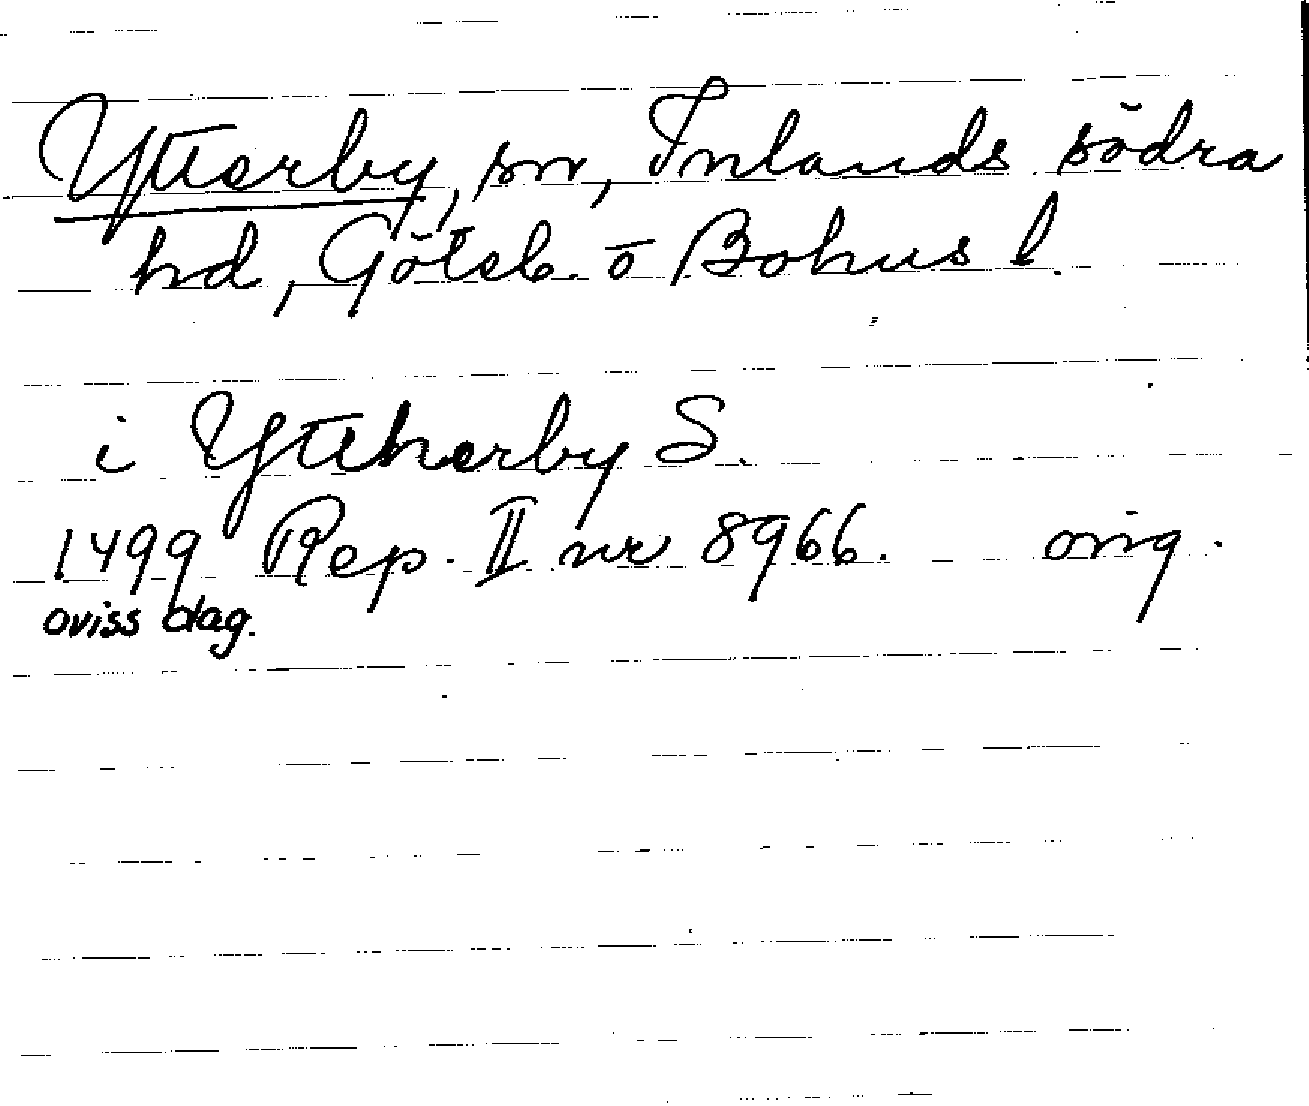 Ytterby, sn, Inlands södra
hd, Göteb. o Bohus l.
i Yttherby S.
1499 Rep. II nr 8966. orig.
oviss dag.